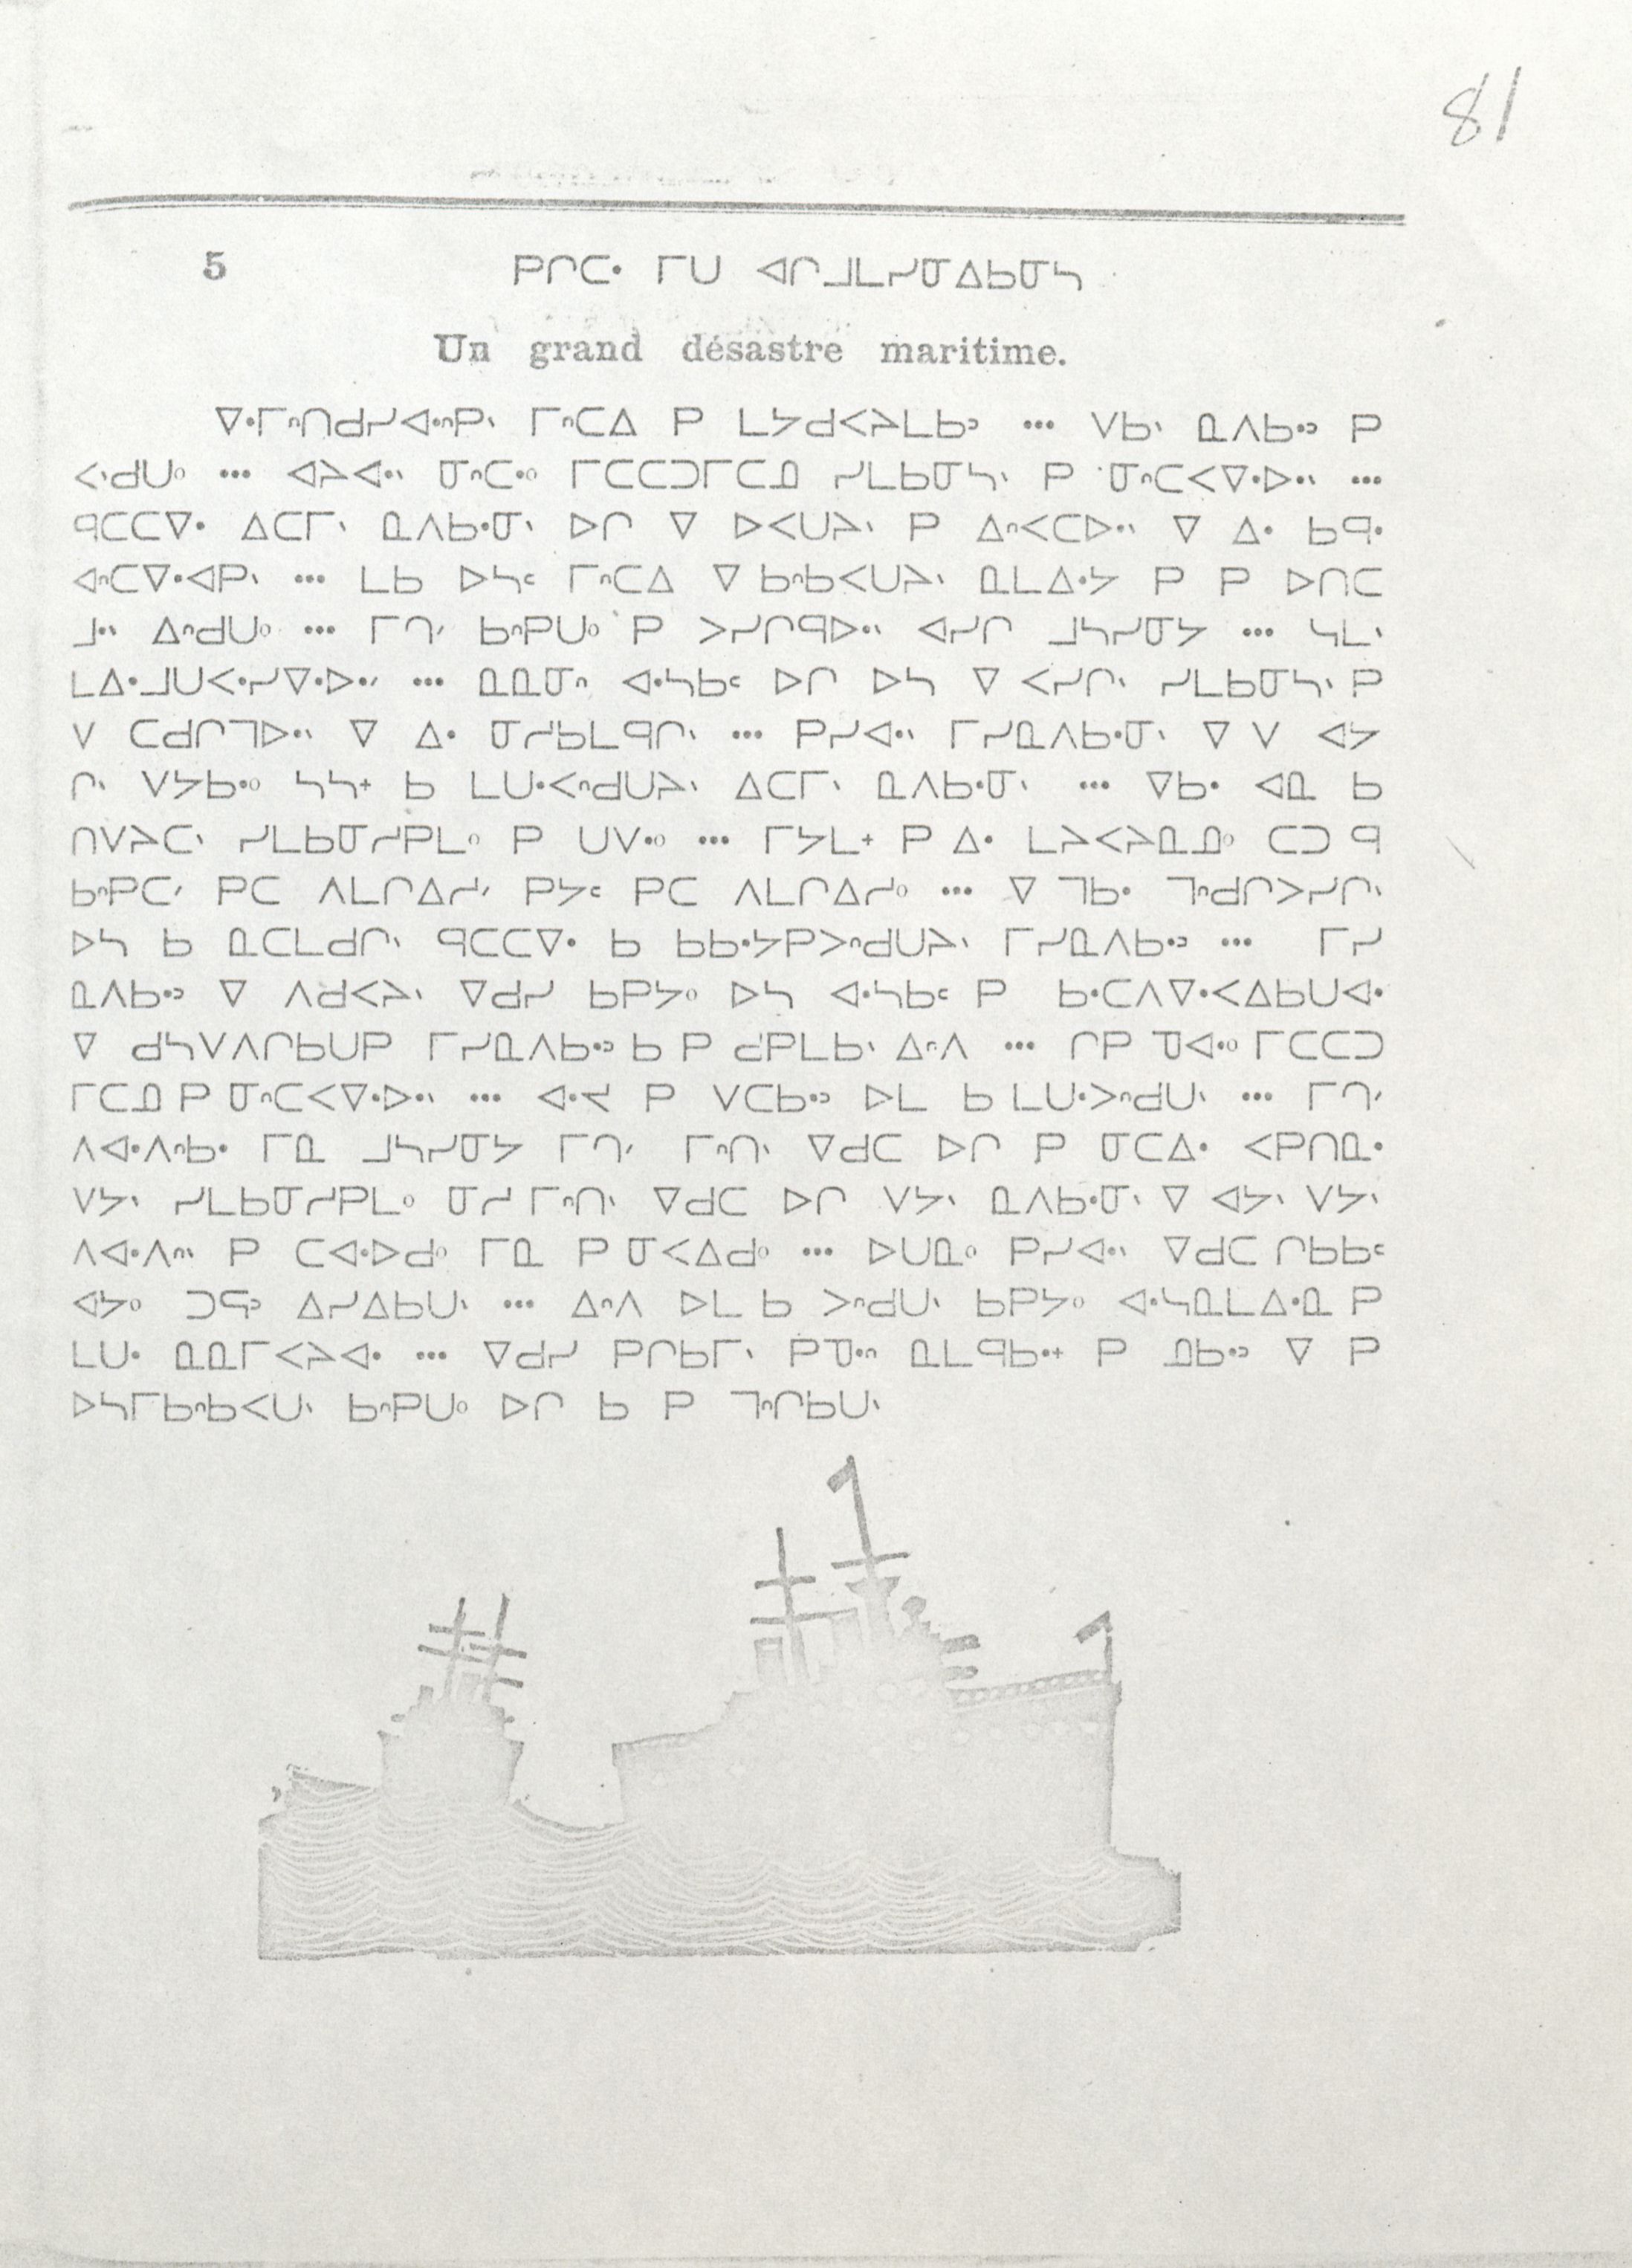 81
5 ᑭᒋᑕᐧ ᒥᑌ ᐊᒋᒧᒪᓯᓂᐃᑲᓂᓴ
Un grand désastre maritime.
ᐁᐧᒥᐢᑎᑯᓯᐊᐧᐢᑭᐠ ᒥᐢᑕᐃ ᑭ ᒪᔭᑯᐸᔨᒪᑲᐣ ... ᐯᑲᐠ ᓇᐱᑲᐧᐣ ᑭ
ᐸᐠᑯᑌᐤ ... ᐊᔨᐊᐧᐠ ᓂᐢᑕᐧᐤ ᒥᑕᑕᑐᒥᑕᓄ ᓯᒪᑲᓂᓴᐠ ᑭ ᓂᐢᑕᐸᐁᐧᐅᐧᐠ ...
ᑫᑕᑕᐁᐧ ᐃᑕᒥᐠ ᓇᐱᑲᐧᓂᐠ ᐅᒋ ᐁ ᐅᐸᑌᔨᐠ ᑭ ᐃᐢᐸᑕᐅᐧᐠ ᐁ ᐃᐧ ᑲᑫᐧ
ᐊᐢᑕᐁᐧᐊᑭᐠ ... ᒪᑲ ᐅᓴᒼ ᒥᐢᑕᐃ ᐁ ᑲᐢᑲᐸᑌᔨᐠ ᓇᒪᐃᐧᔭ ᑭ ᑭ ᐅᑎᑕ
ᒧᐧᐠ ᐃᐢᑯᑌᐤ ... ᒥᒉᐟ ᑲᐢᑭᑌᐤ ᑭ ᐳᓯᒋᑫᐅᐧᐠ ᐊᓯᒋ ᒧᓴᓯᓂᔭ ... ᓴᒪᐠ
ᒪᐃᐧᒧᑌᐸᐧᓯᐁᐧᐅᐧᐟ ... ᓇᓇᓂᐢ ᐊᐧᓴᑲᒼ ᐅᒋ ᐅᓴ ᐁ ᐸᓯᒋᐠ ᓯᒪᑲᓂᓴᐠ ᑭ
ᐯ ᑕᑯᒋᒣᐅᐧᐠ ᐁ ᐃᐧ ᓂᓱᑲᒪᑫᒋᐠ ... ᑭᓯᐊᐧᐠ ᒥᓯᓇᐱᑲᐧᓂᐠ ᐁ ᐯ ᐊᔭ
ᒋᐠ ᐯᔭᑲᐧᐤ ᓴᓴᐩ ᑲ ᒪᑌᐧᐸᐢᑯᑌᔨᐠ ᐃᑕᒥᐠ ᓇᐱᑲᐧᓂᐠ ... ᐁᑲᐧ ᐊᓇ ᑲ
ᑎᐯᔨᑕᐠ ᓯᒪᑲᓂᓱᑭᒪᐤ ᑭ ᑌᐯᐧᐤ ... ᒥᔭᒪᐩ ᑭ ᐃᐧ ᒪᔨᐸᔨᓇᓄᐤ ᑕᑐ ᑫ
ᑲᐢᑭᑕᐟ ᑭᑕ ᐱᒪᒋᐃᓱᐟ ᑭᔭᒼ ᑭᑕ ᐱᒪᒋᐃᓱᐤ ... ᐁ ᒣᑲᐧ ᒣᐢᑯᒋᐳᓯᒋᐠ
ᐅᓴ ᑲ ᓇᑕᒪᑯᒋᐠ ᑫᑕᑕᐁᐧ ᑲ ᑲᑲᐧᔭᑭᐳᐢᑯᑌᔨᐠ ᒥᓯᓇᐱᑲᐧᐣ ... ᒥᓯ
ᓇᐱᑲᐧᐣ ᐁ ᐱᑯᐸᔨᐠ ᐁᑯᓯ ᑲᑭᔭᐤ ᐅᓴ ᐊᐧᓴᑲᒼ ᑭ ᑲᐧᑕᐱᐁᐧᐸᐃᑲᑌᐊᐧ
ᐁ ᑯᓴᐯᐱᒋᑲᑌᑭ ᒥᓯᓇᐱᑲᐧᐣ ᑲ ᑭ ᑯᑭᒪᑲᐠ ᐃᐢᐱ ... ᒋᑭ ᓀᐊᐧᐤ ᒥᑕᑕᑐ
ᒥᑕᓄ ᑭ ᓂᐢᑕᐸᐁᐧᐅᐧᐠ ... ᐊᐧᔪ ᑭ ᐯᑕᑲᐧᐣ ᐅᒪ ᑲ ᒪᑌᐧᐳᐢᑯᑌᐠ ... ᒥᒉᐟ
ᐱᐊᐧᐱᐢᑲᐧ ᒥᓇ ᒧᓴᓯᓂᔭ ᒥᒉᐟ ᒥᐢᑎᐠ ᐁᑯᑕ ᐅᒋ ᑭ ᓂᑕᐃᐧ ᐸᑭᑎᓇᐧ
ᐯᔭᐠ ᓯᒪᑲᓂᓱᑭᒪᐤ ᓂᓱ ᒥᐢᑎᐠ ᐁᑯᑕ ᐅᒋ ᐯᔭᐠ ᓇᐱᑲᐧᓂᐠ ᐁ ᐊᔭᐠ ᐯᔭᐠ
ᐱᐊᐧᐱᐢᐠ ᑭ ᑕᐊᐧᐅᑯᐤ ᒥᓇ ᑭ ᓂᐸᐃᑯᐤ ... ᐅᑌᓇᐤ ᑭᓯᐊᐧᐠ ᐁᑯᑕ ᒋᑲᑲᒼ
ᐊᔭᐤ ᐃᓯᐃᑲᑌᐠ ... ᐃᐢᐱ ᐅᒪ ᑲ ᐳᐢᑯᑌᐠ ᑲᑭᔭᐤ ᐊᐧᓴᓇᒪᐃᐧᓇ ᑭ
ᒪᑌᐧ ᓇᓇᒥᐸᔨᐊᐧ ... ᐁᑯᓯ ᑭᒋᑲᒥᐠ ᑭᓀᐧᐢ ᓇᒪᑫᑲᐧᐩ ᑭ ᓄᑲᐧᐣ ᐁ ᑭ
ᐅᓴᒥᑲᐢᑲᐸᑌᐠ ᑲᐢᑭᑌᐤ ᐅᒋ ᑲ ᑭ ᒣᐢᒋᑲᑌᐠ